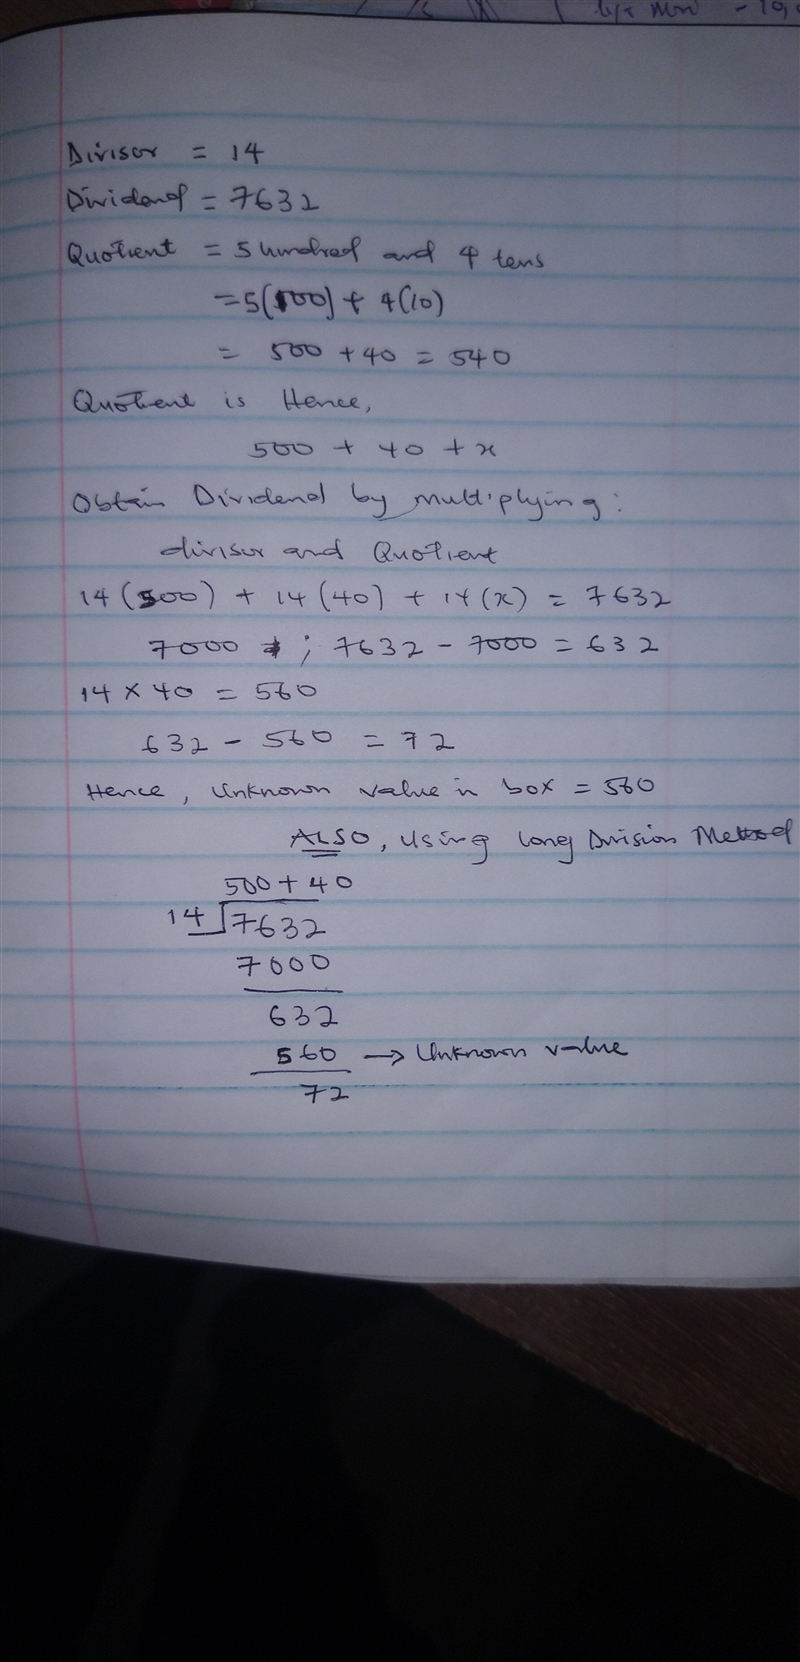 Divisor = 14
Dividend = 7632
Quotient = 5 hundred and 4 tens
= 5(100) + 4(10)
= 500 + 40 = 540
Quotient is Hence,
500 + 40 + x
Obtain Dividend by multiplying:
divisor and Quotient
14(500) + 14(40) + 14(x) = 7632
7000 ; 7632 - 7000 = 632
14 × 40 = 560
632 - 560 = 72
Hence, Unknown value in box = 560
ALSO, Using Long Division Method
500 + 40
14 7632
7000
632
560 → Unknown value
72